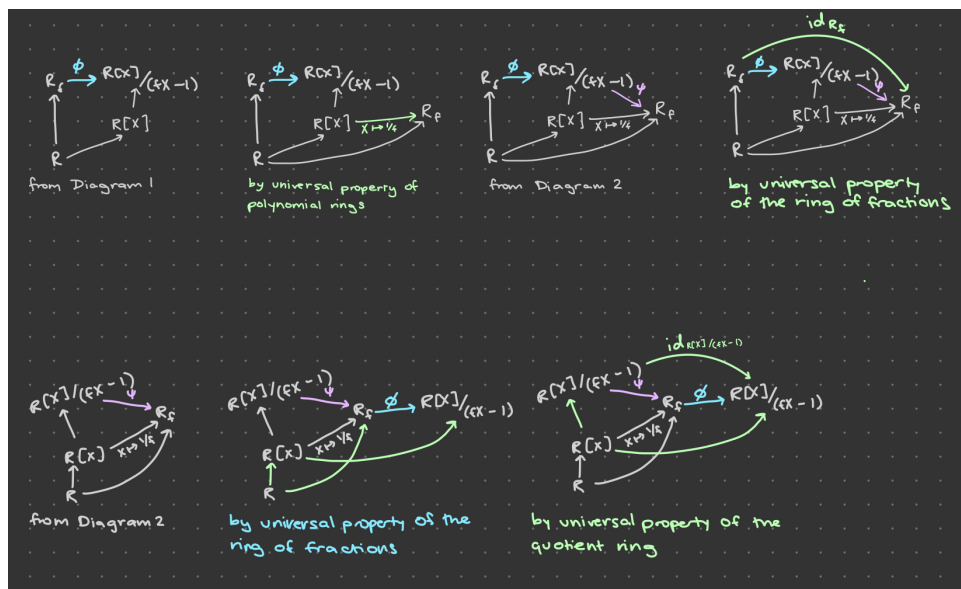 id R_f
R_f ϕ R[X]/(fX-1)
R[X]
R
from Diagram 1
R_f ϕ R[X]/(fX-1)
R[X] X ↦ 1/f R_f
R
by universal property of
polynomial rings
R_f ϕ R[X]/(fX-1) ψ
R[X] X ↦ 1/f R_f
R
from Diagram 2
R_f ϕ R[X]/(fX-1) ψ
R[X] X ↦ 1/f R_f
R
by universal property
of the ring of fractions
R[X]/(fX-1) ψ R_f
R[X] X ↦ 1/f
R
from Diagram 2
R[X]/(fX-1) ψ R_f ϕ R[X]/(fX-1)
R[X] X ↦ 1/f
R
by universal property of the
ring of fractions
id R[X]/(fX-1)
R[X]/(fX-1) ψ R_f ϕ R[X]/(fX-1)
R[X] X ↦ 1/f
R
by universal property of the
quotient ring